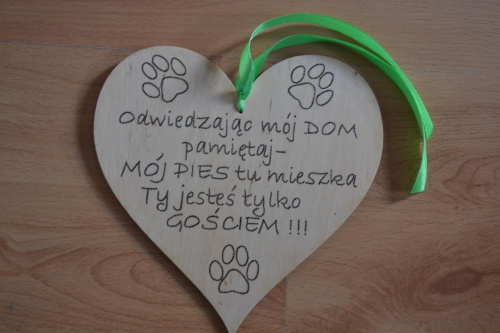 Odwiedzając mój DOM
pamiętaj-
MÓJ PIES tu mieszka
Ty jesteś tylko
GOŚCIEM !!!